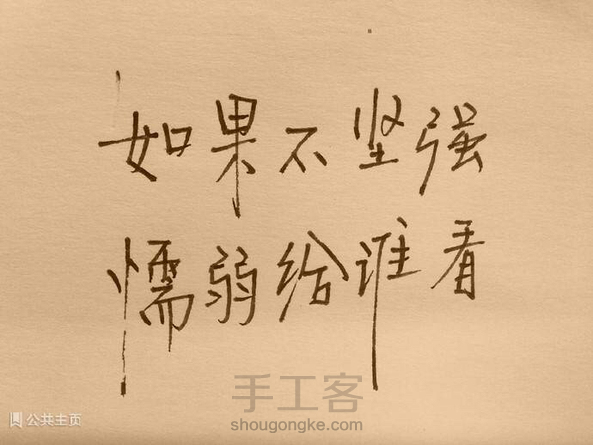 如果不坚强
懦弱给谁看
手工客
shougongke.com
公共主页